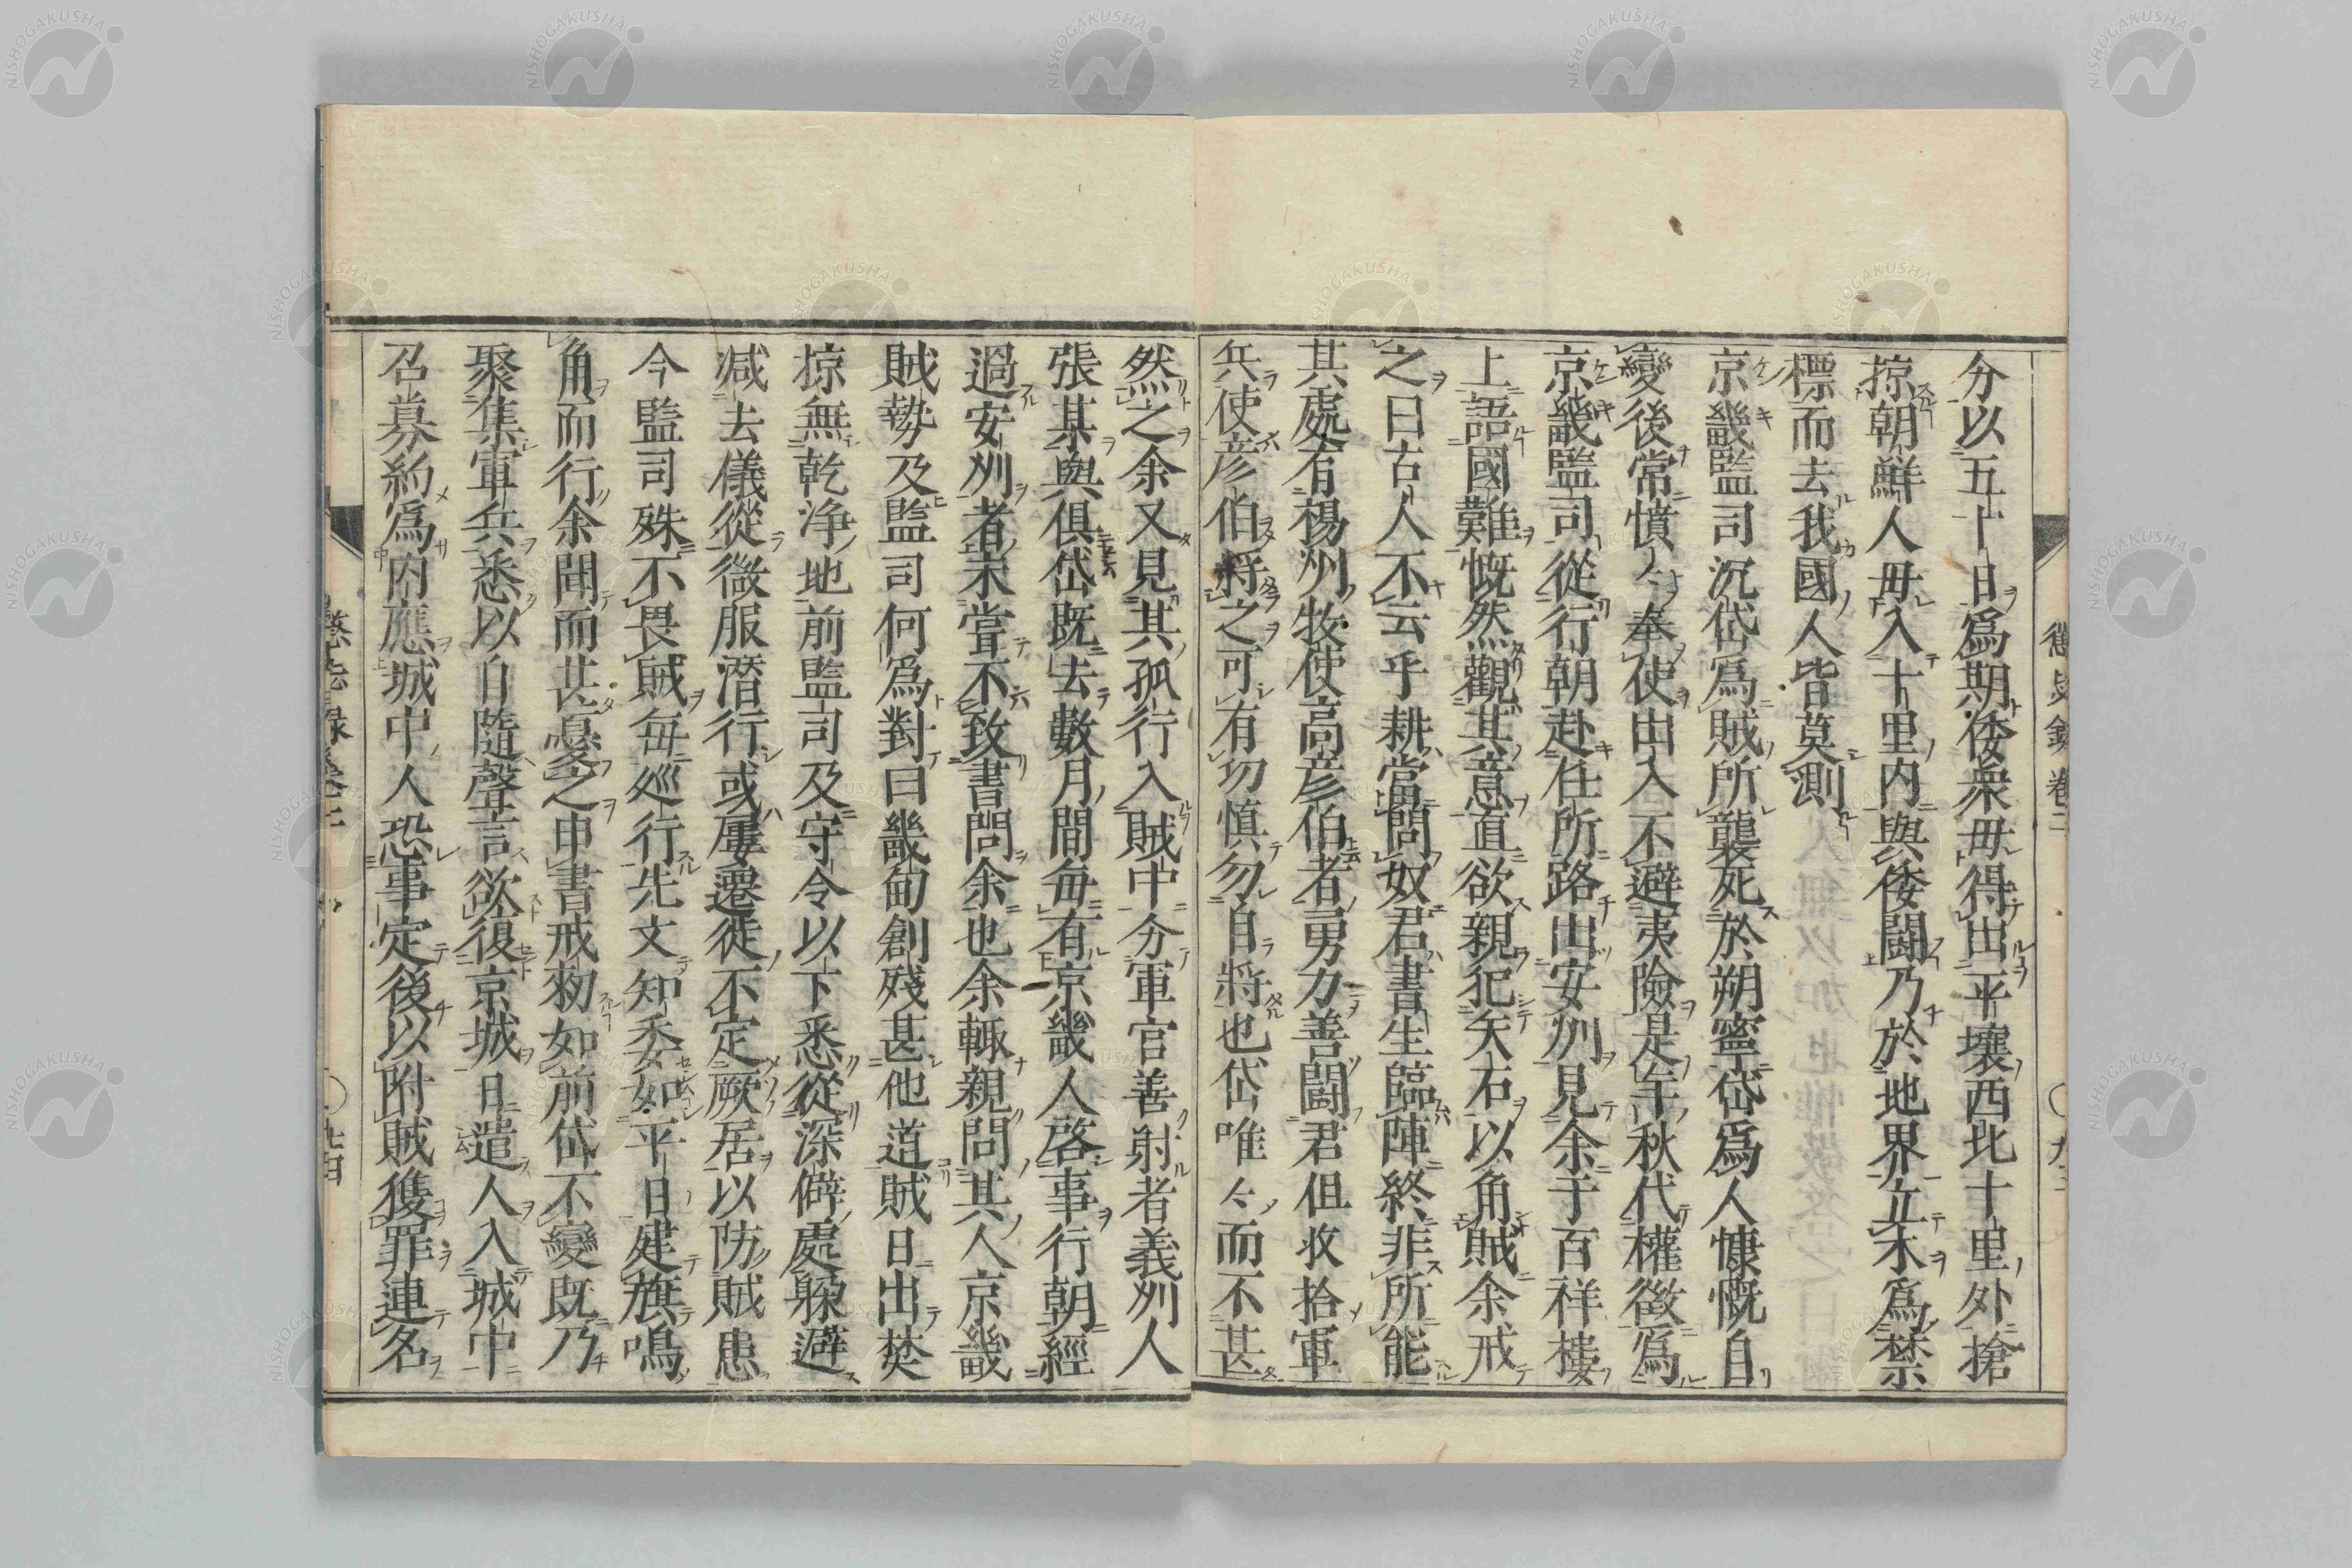 分以五十日爲期倭衆毋得出平壤西北十里外搶
掠朝鮮人毋入十里內與倭鬪乃於地界立木爲禁
標而去我國人皆莫測
京畿監司沉岱爲賊所襲死於朔寧岱爲人慷慨自
變後常憤々奉使出入不避夷險是年秋代權徵爲
京畿監司從行朝赴任所路出安州見余于百祥樓
上語國難慨然觀其意直欲親犯矢石以角賊余戒
之曰古人不云乎耕當問奴君書生臨陣終非所能
其處有楊州牧使高彦伯者勇力善鬪君但收拾軍
兵使彦伯將之可有功慎勿自將也岱唯々而不甚
然之余又見其孤行入賊中分軍官善射者義州人
張某與俱岱既去數月間每有京畿人啓事行朝經
過安州者未嘗不致書問余也余輒親問其人京畿
賊勢及監司何爲對曰畿甸創殘甚他道賊日出焚
掠無乾淨地前監司及守令以下悉從深僻處躱避
减去儀從微服潛行或屢遷徙不定厥居以防賊患
今監司殊不畏賊每巡行先文知委如平日建旗鳴
角而行余聞而甚憂之申書戒勑如前岱不變既乃
聚集軍兵悉以自隨聲言欲復京城日遣人入城中
召募約爲內應城中人恐事定後以附賊獲罪連名
懲毖錄卷二